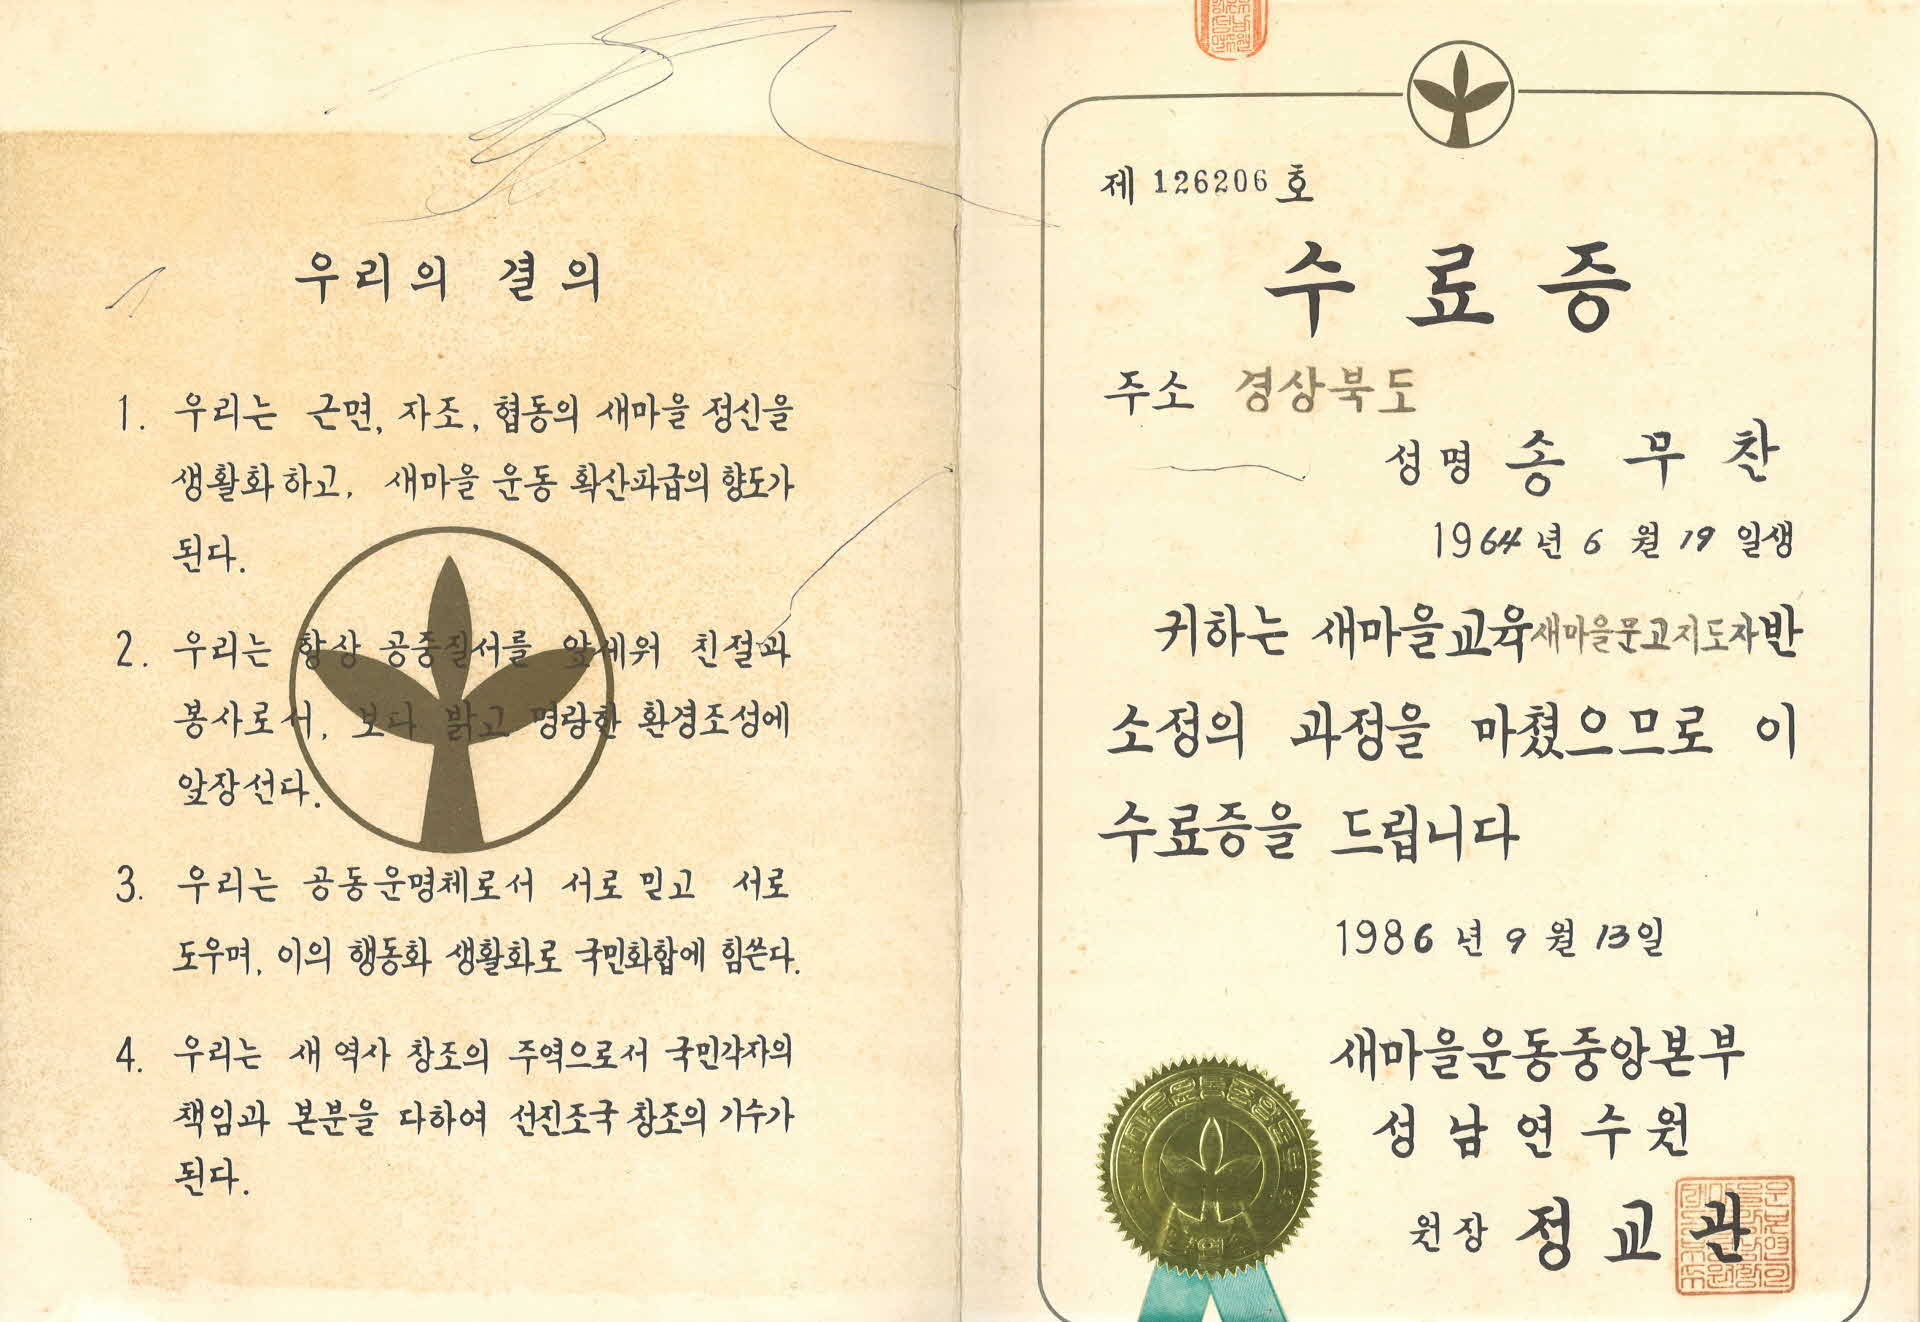 우리의 결의
1. 우리는 근면, 자조, 협동의 새마을 정신을
생활화 하고, 새마을 운동 확산파급의 향도가
된다.
2. 우리는 항상 공중질서를 앞세워 친절과
봉사로서, 보다 밝고 명랑한 환경조성에
앞장선다.
3. 우리는 공동운명체로서 서로 믿고 서로
도우며, 이의 행동화 생활화로 국민화합에 힘쓴다.
4. 우리는 새 역사 창조의 주역으로서 국민각자의
책임과 본분을 다하여 선진조국 창조의 기수가
된다.
제 126206 호
수료증
주소 경상북도
성명 송무찬
1964년 6월 19일생
귀하는 새마을교육새마을문고지도자반
소정의 과정을 마쳤으므로 이
수료증을 드립니다
1986년 9월 13일
새마을운동중앙본부
성남연수원
원장 정교관